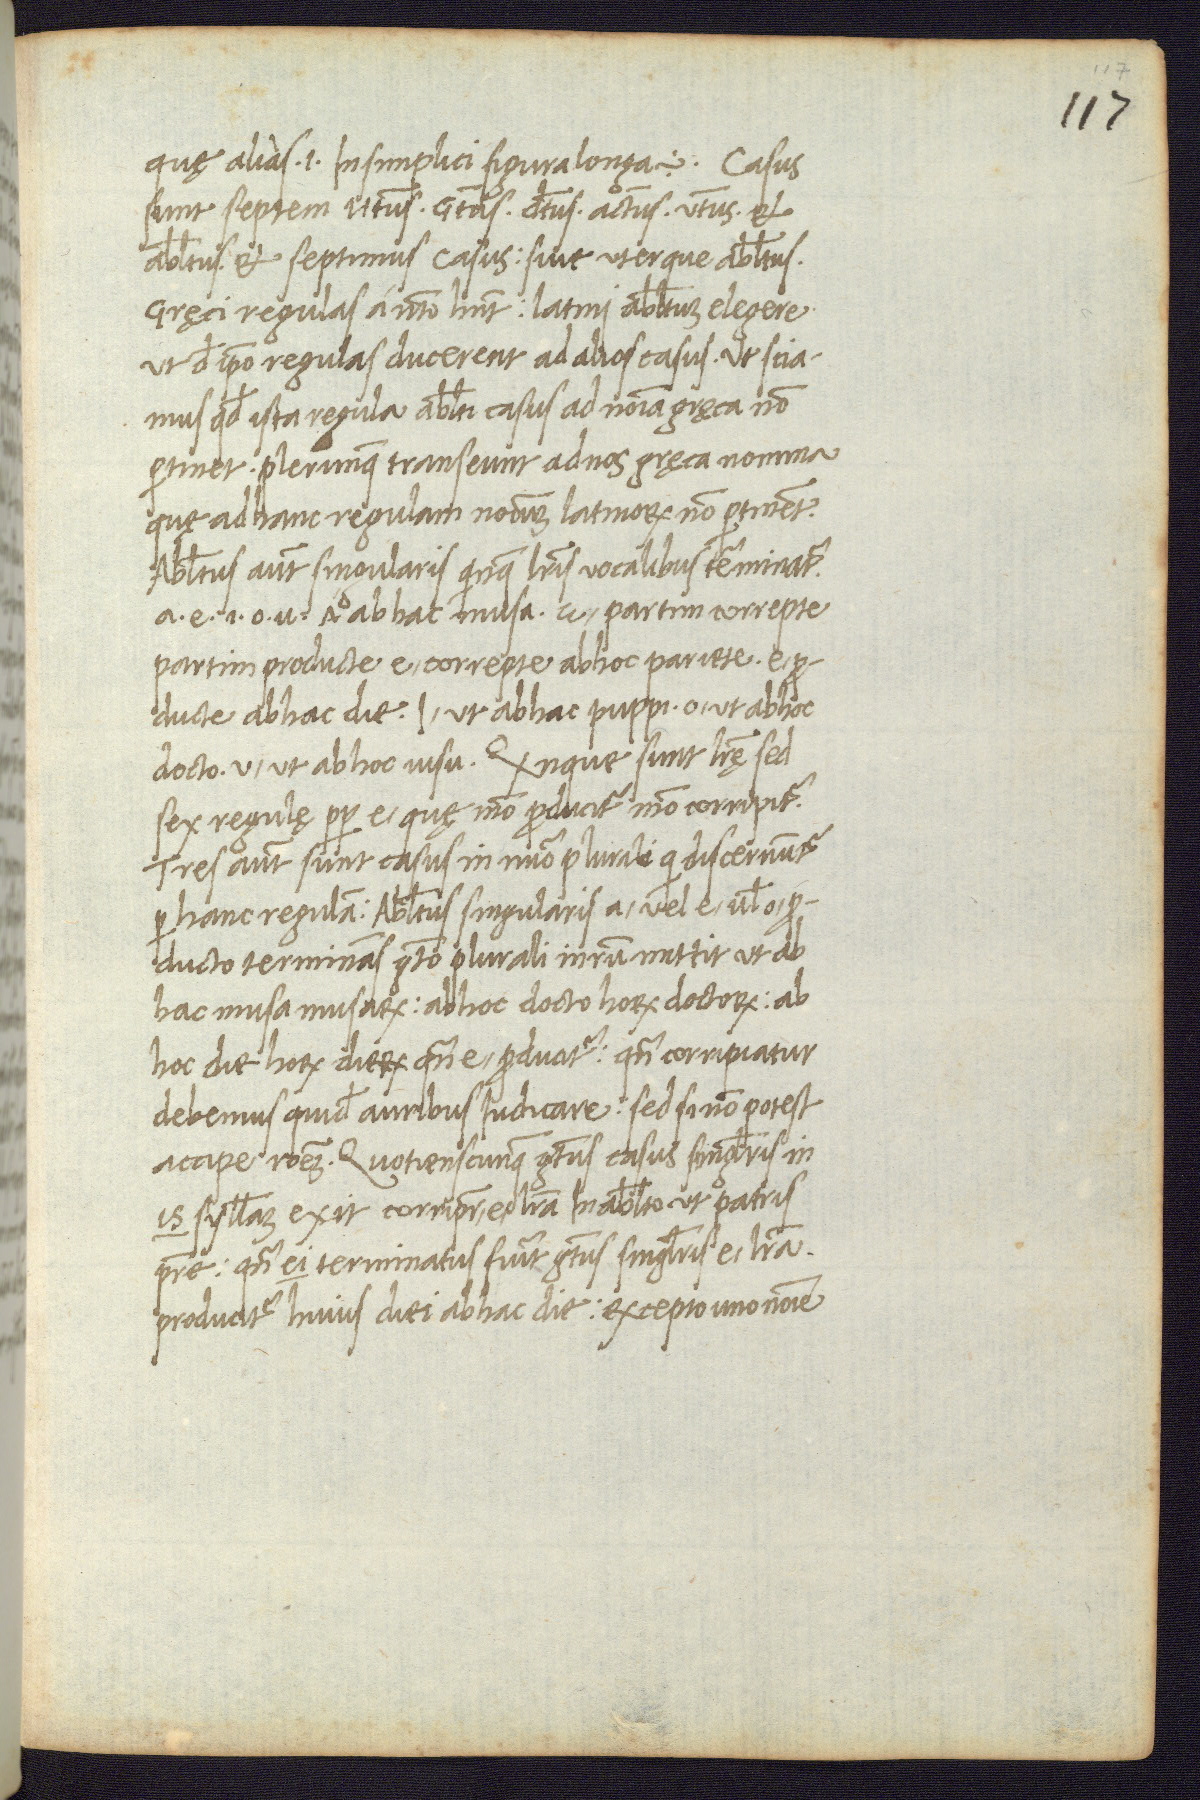 117
117
quę aliàs. i. In simplici figura longa ÷. Casus
sunt septem Ntūs. Gtūs. dtūs. actūs. vtūs. &
abltūs. & septimus casus: siue uterque abltūs.
Gręci regulas á ntō hn̄t: latini abltūꝫ elegere
ut đ ip̄o regulas ducerent ad alios casus. Ut scia-
mus qđ ista regula abltī casus ad noīa gręca nō
ꝑtinet. plerunqꝫ transeunt ad nos gręca nomina
quę ad hanc regulam latinoꝝ nō ꝑtinēt.
Abltūs aūt singularis qīnqꝫ lrīs vocalibus tērminatᷣ.
a. e. i. o. u. Aͦ ab hac musa. e, partim correpte
partim producte e, correpte ab hoc pariete. e, ꝓ-
ducte ab hac die. I, ut ab hac puppi. o, ut ab hoc
docto. u, ut ab hoc uisu. Qīnque sunt lrę̄ sed
sex regulę ꝓp e, quę mō ꝓducitᷣ mō corripitᷣ.
Tres aūt sunt casus in nūo plurali qi discernūtᷣ
ꝑ hanc regulā: Abltūs singularis a, uel e, ul̄ o, ꝓ-
ducto termināṡ gtō plurali in rū mittit ut ab
hac musa musaꝝ: ab hoc docto hoꝝ doctoꝝ: ab
hoc die hoꝝ dieꝝ qn̄ e, ꝓducitᷣ: qn̄ corripiatur
debemus quid̄ auribus Iudicare: sed si nō potest
accipe roēꝫ. Quotienscunqꝫ gtūs casus singlrīs in
is syllāꝫ exit corripr̄, e, lrā In abltō ut patris
pr̄e: qn̄ ei terminatus fuit̄ gtūs singlrīs e, lrā.
producitᷣ huius diei ab hac die: excepto uno noīe